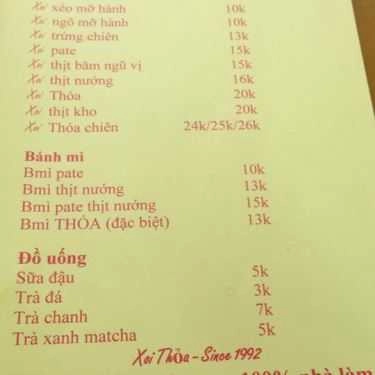 Xôi xéo mỡ hành 10k
Xôi ngô mỡ hành 10k
Xôi trứng chiên 13k
Xôi pate 15k
Xôi thịt băm ngũ vị 15k
Xôi thịt nướng 16k
Xôi Thóa 20k
Xôi thịt kho 20k
Xôi Thóa chiên 24k/25k/26k
Bánh mì
Bmì pate 10k
Bmì thịt nướng 13k
Bmì pate thịt nướng 15k
Bmì THÓA (đặc biệt) 13k
Đồ uống
Sữa đậu 5k
Trà đá 3k
Trà chanh 7k
Trà xanh matcha 5k
Xôi Thỏa - Since 1992
100% nhà làm